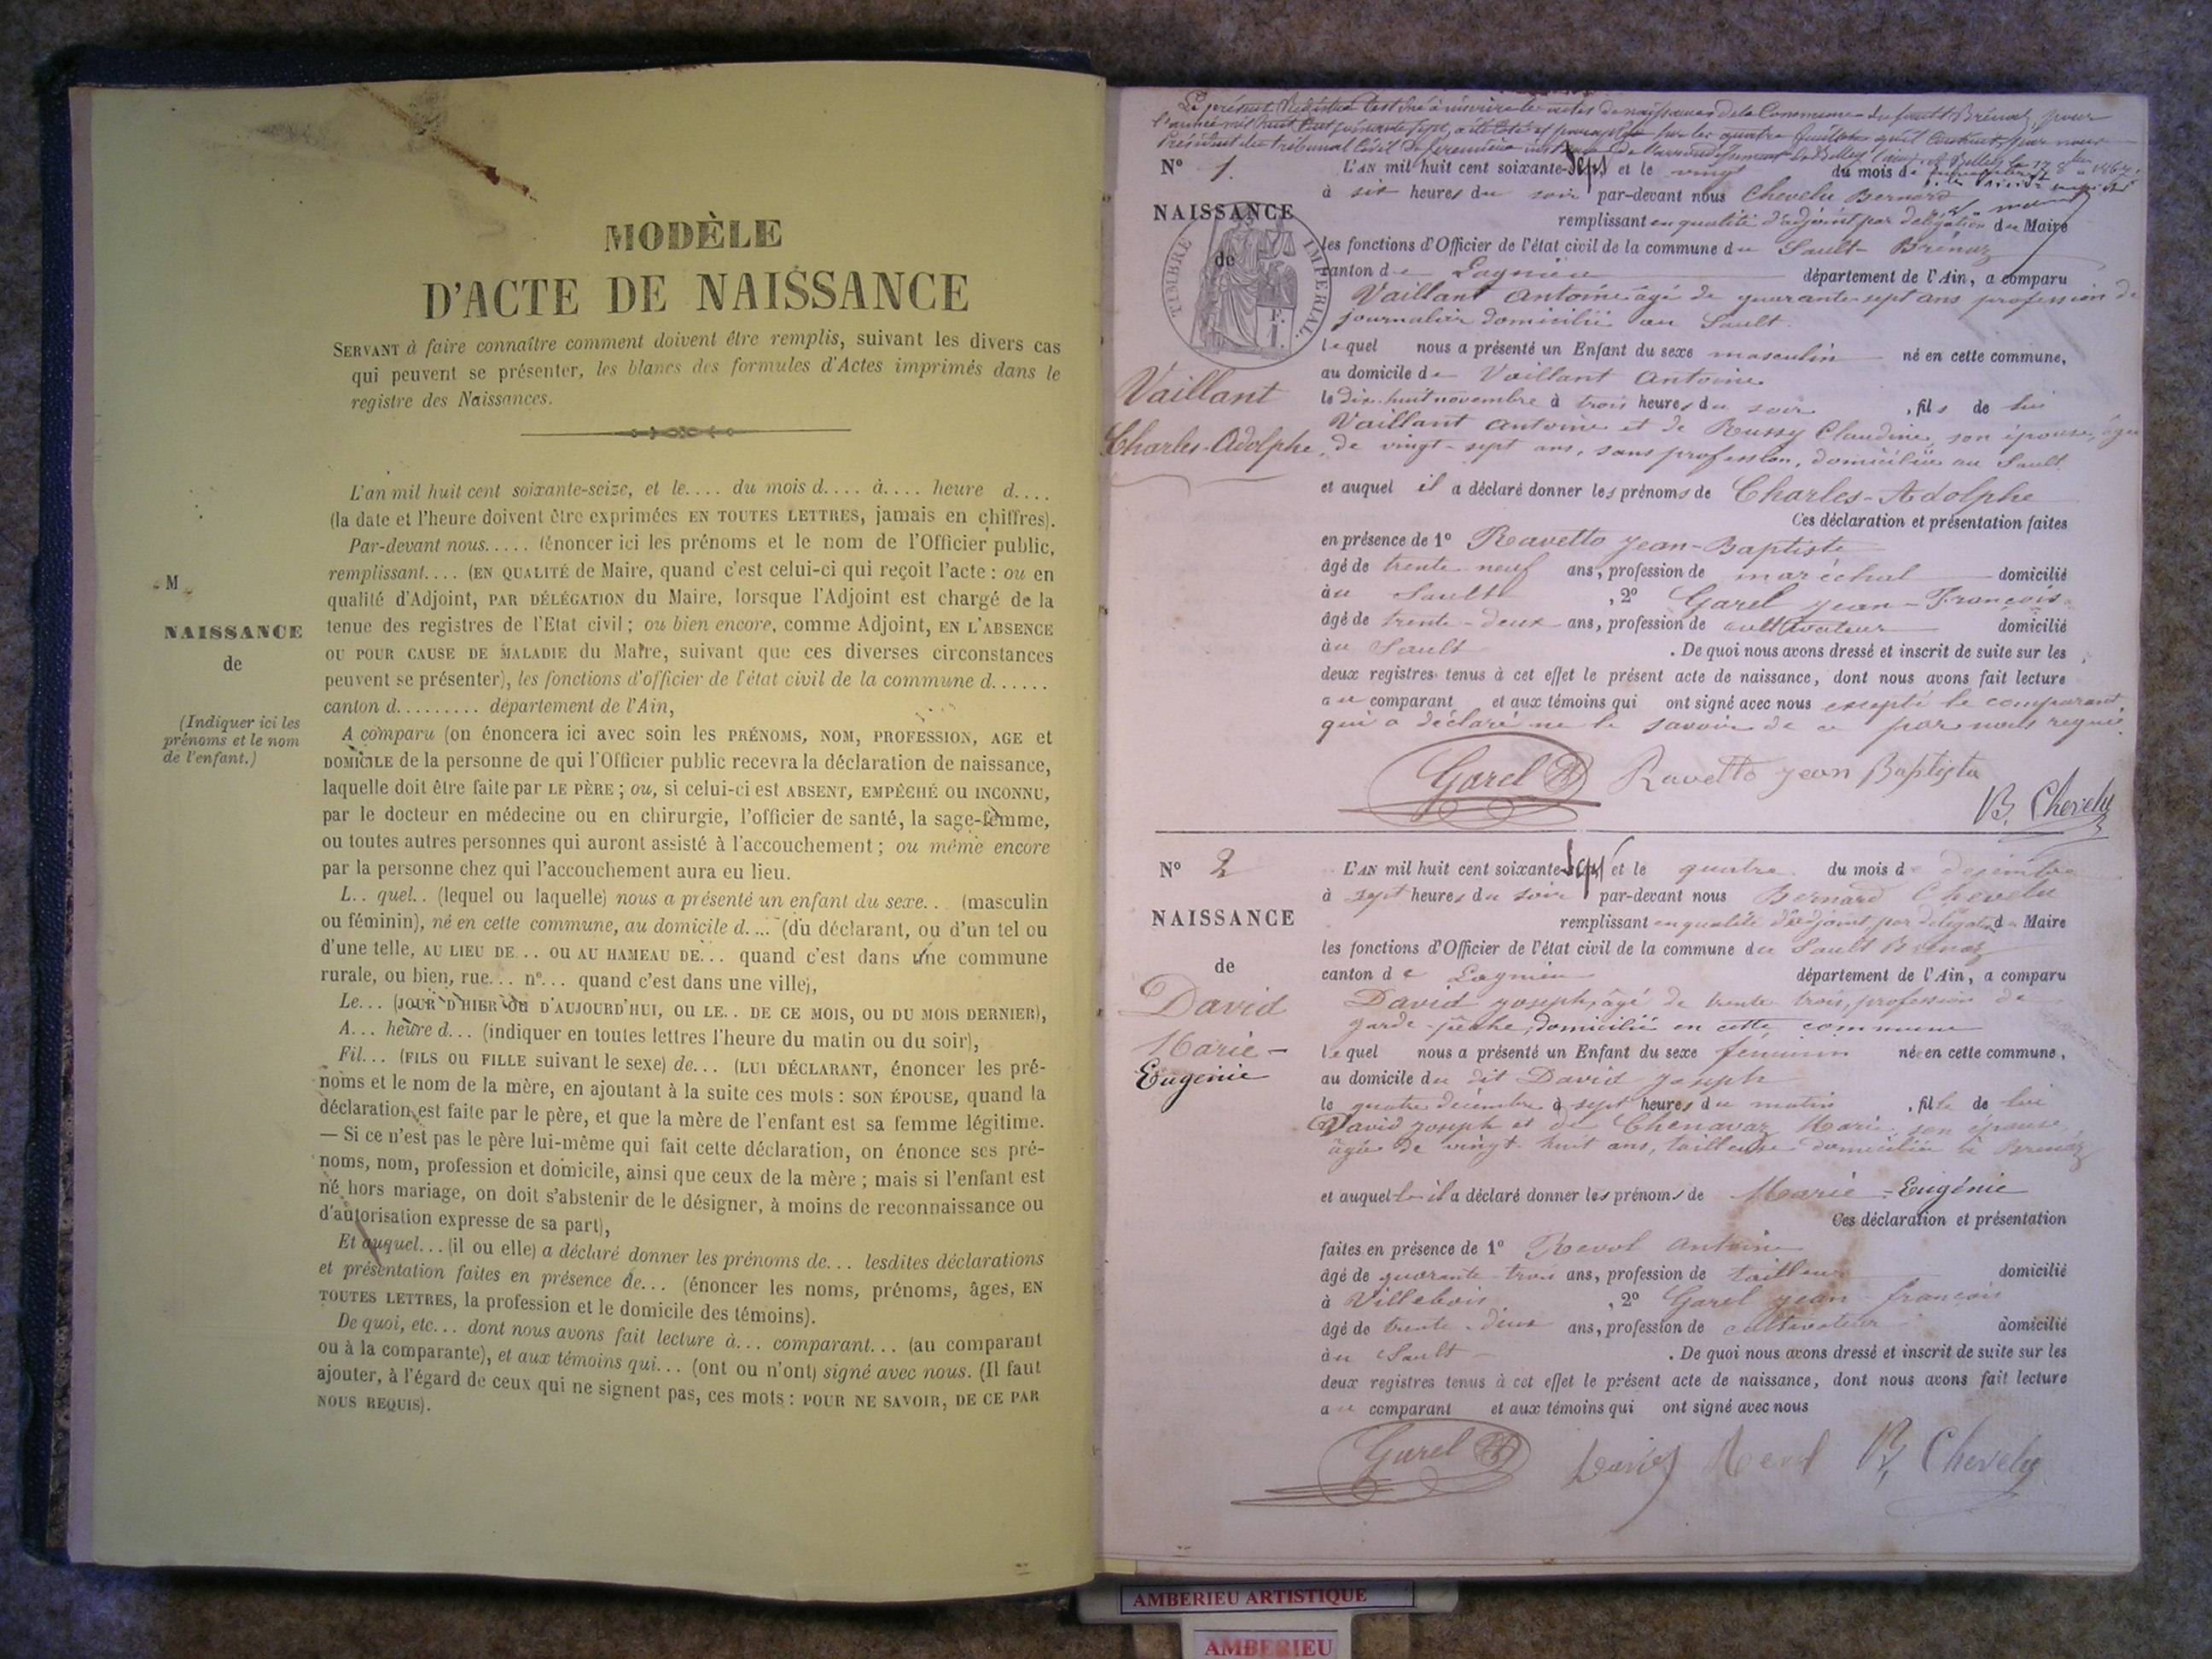 MODÈLE
D'ACTE DE NAISSANCE
SERVANT à faire connaître comment doivent être remplis, suivant les divers cas
qui peuvent se présenter, les blancs des formules d'Actes imprimés dans le
registre des Naissances.
L'an mil huit cent soixante-seize, et le.... du mois d.... à.... heure d....
(la date et l'heure doivent être exprimées EN TOUTES LETTRES, jamais en chiffres).
Par-devant nous..... (énoncer ici les prénoms et le nom de l'Officier public,
remplissant.... (EN QUALITÉ de Maire, quand c'est celui-ci qui reçoit l'acte : ou en
qualité d'Adjoint, PAR DÉLÉGATION du Maire, lorsque l'Adjoint est chargé de la
tenue des registres de l'Etat civil ; ou bien encore, comme Adjoint, EN L'ABSENCE
OU POUR CAUSE DE MALADIE du Maire, suivant que ces diverses circonstances
peuvent se présenter), les fonctions d'officier de l'état civil de la commune d......
canton d......... département de l'Ain,
M
NAISSANCE
de
(Indiquer ici les
prénoms et le nom
de l'enfant.)
A comparu (on énoncera ici avec soin les PRÉNOMS, NOM, PROFESSION, AGE et
DOMICILE de la personne de qui l'Officier public recevra la déclaration de naissance,
laquelle doit être faite par LE PÈRE ; ou, si celui-ci est ABSENT, EMPÊCHÉ OU INCONNU,
par le docteur en médecine ou en chirurgie, l'officier de santé, la sage-femme,
ou toutes autres personnes qui auront assisté à l'accouchement ; ou même encore
par la personne chez qui l'accouchement aura eu lieu.
L.. quel.. (lequel ou laquelle) nous a présenté un enfant du sexe.. (masculin
ou féminin), né en cette commune, au domicile d.... (du déclarant, ou d'un tel ou
d'une telle, AU LIEU DE... OU AU HAMEAU DE... quand c'est dans une commune
rurale, ou bien, rue... n°... quand c'est dans une ville),
Le... (JOUR D'HIER OU D'AUJOURD'HUI, OU LE.. DE CE MOIS, OU DU MOIS DERNIER),
A... heure d... (indiquer en toutes lettres l'heure du matin ou du soir),
Fil... (FILS OU FILLE suivant le sexe) de... (LUI DÉCLARANT, énoncer les pré-
noms et le nom de la mère, en ajoutant à la suite ces mots : SON ÉPOUSE, quand la
déclaration est faite par le père, et que la mère de l'enfant est sa femme légitime.
— Si ce n'est pas le père lui-même qui fait cette déclaration, on énonce ses pré-
noms, nom, profession et domicile, ainsi que ceux de la mère ; mais si l'enfant est
né hors mariage, on doit s'abstenir de le désigner, à moins de reconnaissance ou
d'autorisation expresse de sa part),
Et auquel... (il ou elle) a déclaré donner les prénoms de... lesdites déclarations
et présentation faites en présence de... (énoncer les noms, prénoms, âges, EN
TOUTES LETTRES, la profession et le domicile des témoins).
De quoi, etc... dont nous avons fait lecture à... comparant... (au comparant
ou à la comparante), et aux témoins qui... (ont ou n'ont) signé avec nous. (Il faut
ajouter, à l'égard de ceux qui ne signent pas, ces mots : POUR NE SAVOIR, DE CE PAR
NOUS REQUIS).
Le présent Registre destiné à inscrire les actes de naissances de la Commune du Sault-Brénaz, pour
l'année mil huit cent soixante sept, a été coté et paraphé sur les quatre feuillets qu'il contient, par nous
Président du tribunal Civil de première instance de l'arrondissement de Belley
N° 1.
NAISSANCE
de
TIMBRE IMPÉRIAL.
Vaillant
Charles-Adolphe
L'AN mil huit cent soixante-sept et le vingt du mois de
à six heures du soir par-devant nous Chevelu Bernard
remplissant en qualité d'adjoint par délégation du Maire
les fonctions d'Officier de l'état civil de la commune du Sault-Brénaz
canton de Lagnieu département de l'Ain, a comparu
Vaillant Antoine âgé de quarante sept ans profession de
journalier domicilié au Sault.
lequel nous a présenté un Enfant du sexe masculin né en cette commune,
au domicile de Vaillant Antoine
le dix-huit novembre à trois heures du soir, fils de lui
Vaillant Antoine et de Russy Claudine, son épouse, âgée
de vingt-sept ans, sans profession, domiciliée au Sault.
et auquel il a déclaré donner les prénoms de Charles-Adolphe
Ces déclaration et présentation faites
en présence de 1° Ravetto Jean-Baptiste
âgé de trente neuf ans, profession de maréchal domicilié
au Sault, 2° Garel Jean-François
âgé de trente-deux ans, profession de cultivateur domicilié
au Sault. De quoi nous avons dressé et inscrit de suite sur les
deux registres tenus à cet effet le présent acte de naissance, dont nous avons fait lecture
au comparant et aux témoins qui ont signé avec nous excepté le comparant,
qui a déclaré ne le savoir de ce par nous requis.
Garel Ravetto Jean Baptista
B. Chevelu
N° 2
NAISSANCE
de
David
Marie-
Eugénie
L'AN mil huit cent soixante-sept et le quatre du mois de décembre
à sept heures du soir par-devant nous Bernard Chevelu
remplissant en qualité d'adjoint par délégation du Maire
les fonctions d'Officier de l'état civil de la commune du Sault Brenaz
canton de Lagnieu département de l'Ain, a comparu
David Joseph, âgé de trente trois, profession de
garde-pêche, domicilié en cette commune
lequel nous a présenté un Enfant du sexe féminin née en cette commune,
au domicile du dit David Joseph
le quatre décembre à sept heures du matin, fille de lui
David Joseph et de Chenavaz Marie, son épouse,
âgée de vingt huit ans, tailleuse domiciliée à Brenaz
et auquelle il a déclaré donner les prénoms de Marie-Eugénie
Ces déclaration et présentation
faites en présence de 1° Revol Antoine
âgé de quarante-trois ans, profession de tailleur domicilié
à Villebois, 2° Garel Jean-François
âgé de trente-deux ans, profession de cultivateur domicilié
au Sault. De quoi nous avons dressé et inscrit de suite sur les
deux registres tenus à cet effet le présent acte de naissance, dont nous avons fait lecture
au comparant et aux témoins qui ont signé avec nous
Garel David Revol B. Chevelu
AMBERIEU ARTISTIQUE
AMBERIEU